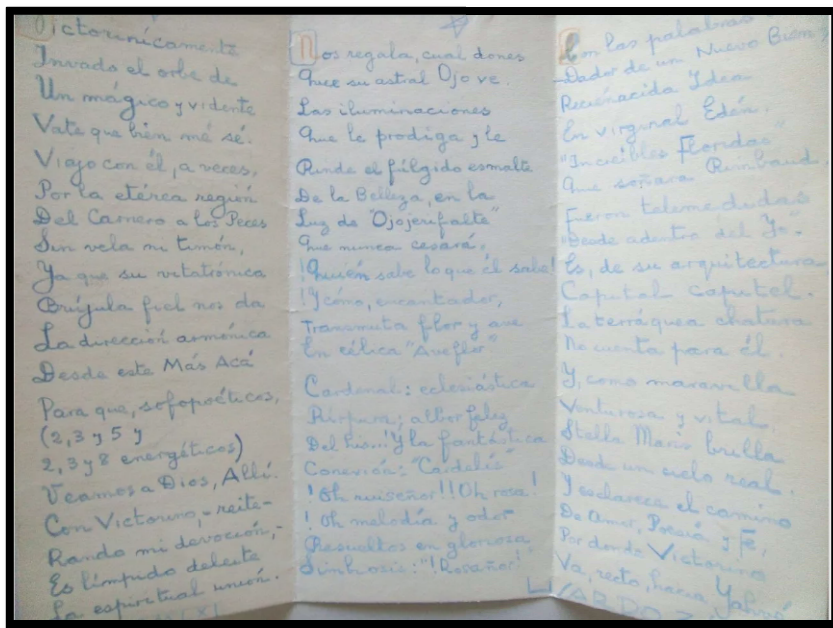 Victorinicamente
Invado el orbe de
Un mágico y vidente
Vate que bien mé sé.
Viajo con él, a veces,
Por la etérea región
Del Carnero a los Peces
Sin vela ni timón,
Ya que su vitatrónica
Brújula fiel nos da
La dirección armónica
Desde este Más Acá
Para que, sofopoéticos,
(2, 3 y 5 y
2, 3 y 8 energéticos)
Veamos a Dios, Allí.
Con Victorino, - reite-
Rando mi devoción, -
Es límpido deleite
La espiritual unión.
Nos regala, cual dones
Que su astral Ojo ve.
Las iluminaciones
Que le prodiga y le
Rinde el fúlgido esmalte
De la Belleza, en la
Luz de "Ojojerifalte"
Que nunca cesará.
!Quién sabe lo que él sabe!
!Y cómo, encantador,
Transmuta flor y ave
En célica "Aveflor"
Cardenal: eclesiástica
Púrpura; albor feliz
Del Lis..! Y la fantástica
Conexión: "Cardelis"
!Oh ruiseñor!!Oh rosa!
!Oh melodía y odor
Resueltos en gloriosa
Simbiosis: "!Roseñor!"
Con las palabras
Dador de un Nuevo Bien,
Recienacida Idea
En virginal Edén.
"Increíbles Floridas"
Que soñara Rimbaud,
Fueron telemedidas
"Desde adentro del Yo".
Es, de su arquitectura
Capital capitel.
La terráquea chatura
No cuenta para él.
Y, como maravilla
Venturosa y vital,
Stella Maris brilla
Desde un cielo real.
Y esclarece el camino
De Amor, Poesía y Fe,
Por donde Victorino
Va, recto, hacia Yahvé